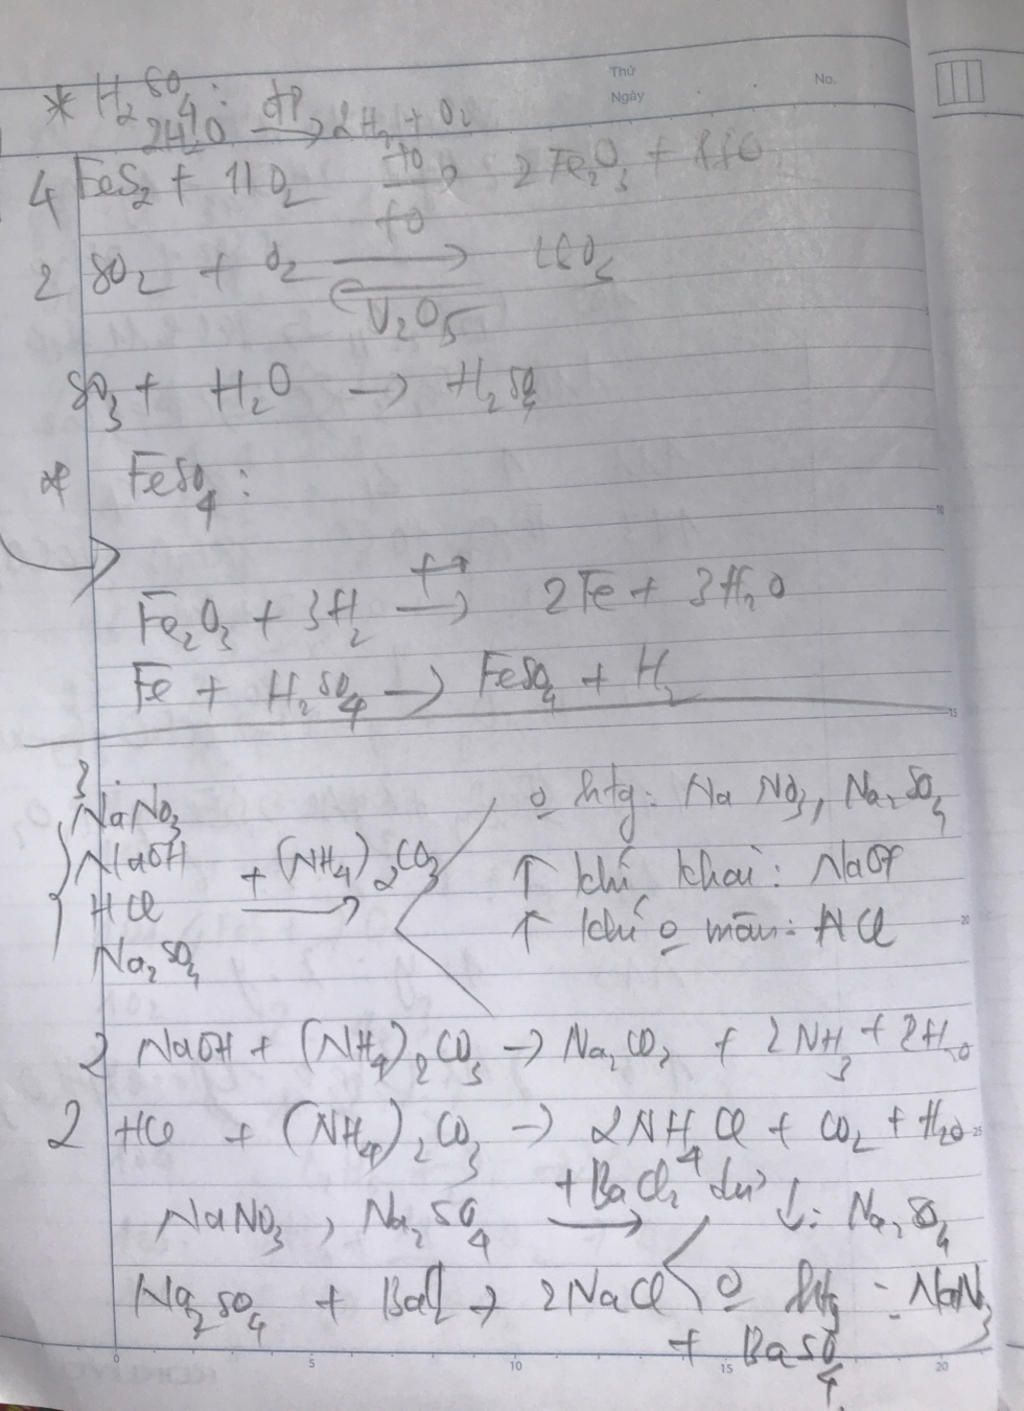 Thứ
Ngày
No.
* H₂SO₄:
2H₂O →(đp) 2H₂ + O₂
4 FeS₂ + 11O₂ →(to) 2Fe₂O₃ + 8SO₂
2 SO₂ + O₂ ⇌(to, V₂O₅) 2SO₃
SO₃ + H₂O → H₂SO₄
* FeSO₄:
Fe₂O₃ + 3H₂ → 2Fe + 3H₂O
Fe + H₂SO₄ → FeSO₄ + H₂
3.
NaNO₃
NaOH
HCl
Na₂SO₄
+ (NH₄)₂CO₃ →
o htg: NaNO₃, Na₂SO₄
↑ khí khai: NaOH
↑ khí o màu: HCl
2 NaOH + (NH₄)₂CO₃ → Na₂CO₃ + 2NH₃ + 2H₂O
2 HCl + (NH₄)₂CO₃ → 2NH₄Cl + CO₂ + H₂O
NaNO₃, Na₂SO₄ →(+BaCl₂ dư) ↓: Na₂SO₄
o htg: NaNO₃
Na₂SO₄ + BaCl₂ → 2NaCl
+ BaSO₄
10
15
20
25
0 5 10 15 20